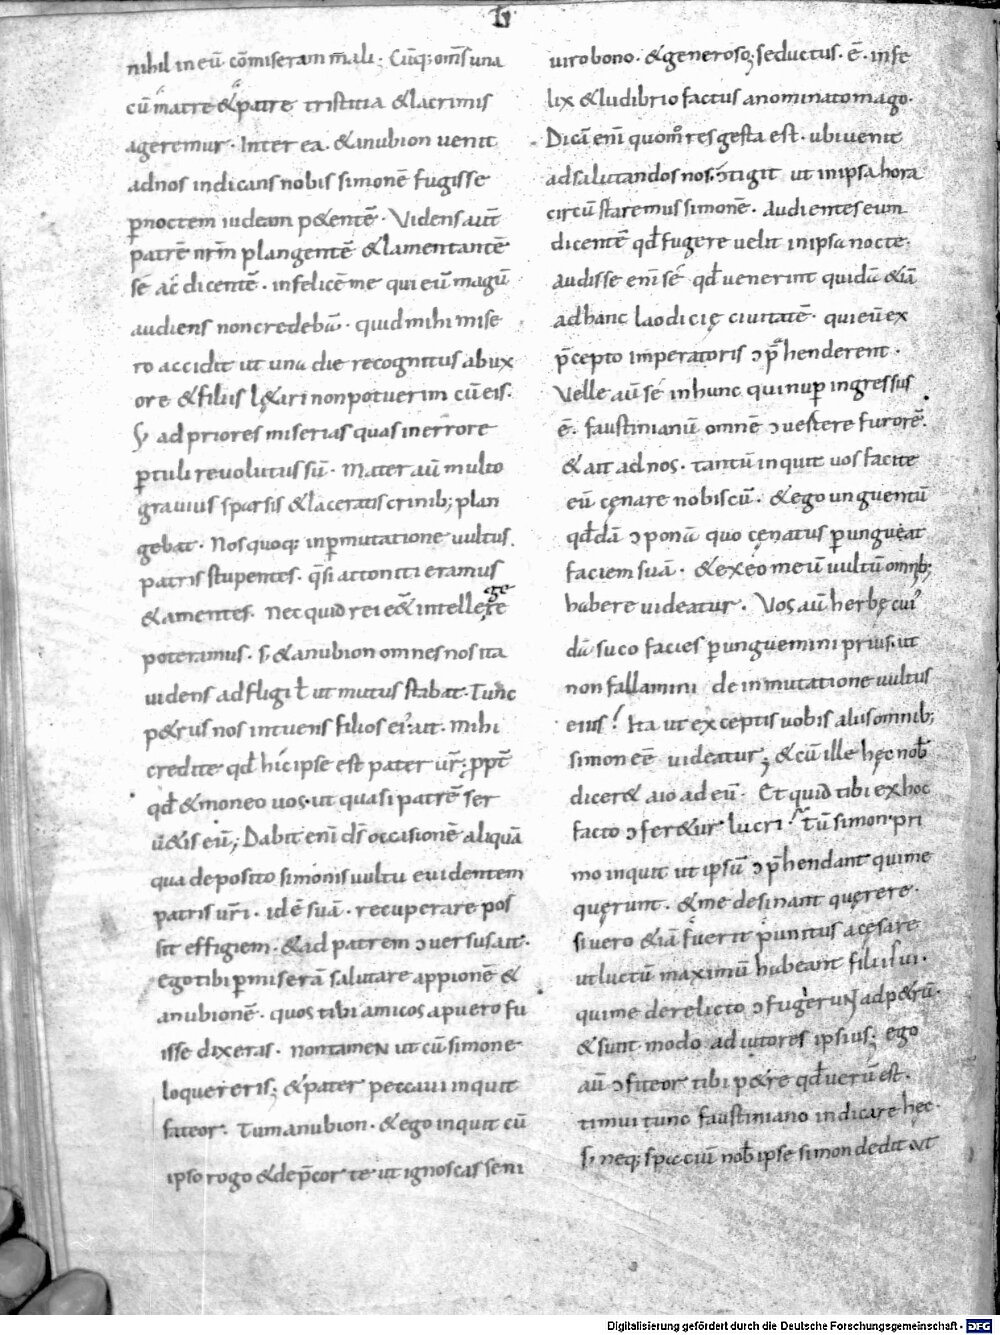 nihil in eū cōmiseram mali; Cūq; om̄s una
cū matre & patre tristitia & lacrimis
ageremur· Inter ea· & anubion uenit
ad nos indicans nobis simonē fugisse
p̱ noctem iudeam p&entē· Videns aut̄
patrē nr̄m plangentē & lamentantē
sé ac̄ dicentē· infelicē me qui eū magū
audiens non credebā· quid mihi mise
ro accidit ut una die recognitus ab ux
ore & filiis l&ari non potuerim cū eis·
S; ad priores miserias quas in errore
p̱tuli reuolutus sū· Mater aū multo
grauius sparsis & laceratis crinib; plan
gebat· Nos quoq; in p̱mutatione uultus
patris stupentes· q̄si attoniti eramus
& amentes· Nec quid rei eēt intellegere
poteramus· s; & anubion omnes nos ita
uidens adfligi ut mutus stabat· Tunc
p&rus nos intuens filios ei; ait· Mihi
credite qđ hic ipse est pater ur̄; ppt̄
qđ & moneo uos· ut quasi patrē ser
u&is eū; Dabit enī dś occasionē aliquā
qua deposito simonis uultu euidentem
patris ur̄i· idē suā· recuperare pos
sit effigiem· & ad patrem ɔuersus ait·
ego tibi p̱miserā salutare appionē &
anubionē· quos tibi amicos a puero fu
isse dixeras· non tamen ut cū simone
loquereris; & pater peccaui inquit
fateor· Tum anubion· & ego inquit cū
ipso rogo & dep̄cor te ut ignoscas seni
uiro bono· & generoso; seductus· ē· infe
lix & ludibrio factus a nominato mago·
Dicā enī quom̊ res gesta est· ubi uenit
ad salutandos nos· ɔtigit ut in ipsa hora
circū staremus simonē· audientes eum
dicentē qđ fugere uelit in ipsa nocte·
audisse enī sé qđ uenerint quidā &iā
ad hanc laodicię ciuitatē· qui eū ex
p̄cepto imperatoris ɔp̄henderent·
Velle aū sé in hunc qui nup̱ ingressus
ē· faustinianū omnē ɔuertere furorē·
& ait ad nos· tantū inquit uos facite
eū cęnare nobiscū· & ego unguentū
qđdā ɔponā quo cęnatus p̱ungueat
faciem suā· & ex eo meū uultū omnib;
habere uideatur· Vos aū herbę cui
dā suco facies p̱unguemini prius· ut
non fallamini de inmutatione uultus
eius! Ita ut exceptis uobis aliis omnib;
simon eē uideatur; & cū ille hęc nob̄
dicer& aio ad eū· Et quid tibi ex hoc
facto ɔfer&ur lucri· Tū simon· pri
mo inquit ut ipsū ɔp̄hendant qui me
quęrunt· & me desinant quęrere·
si uero &iā fuerit punitus a cęsare
ut luctū maximū habeant filii sui·
qui me derelicto ɔfugerunt ad p&rū·
& sunt modo adiutores ipsius; ego
aū ɔfiteor tibi p&re qđ uerū est·
timui tunc faustiniano indicare hęc·
s; neq; spaciū nob̄ ipse simon dedit ut
Digitalisierung gefördert durch die Deutsche Forschungsgemeinschaft - DFG